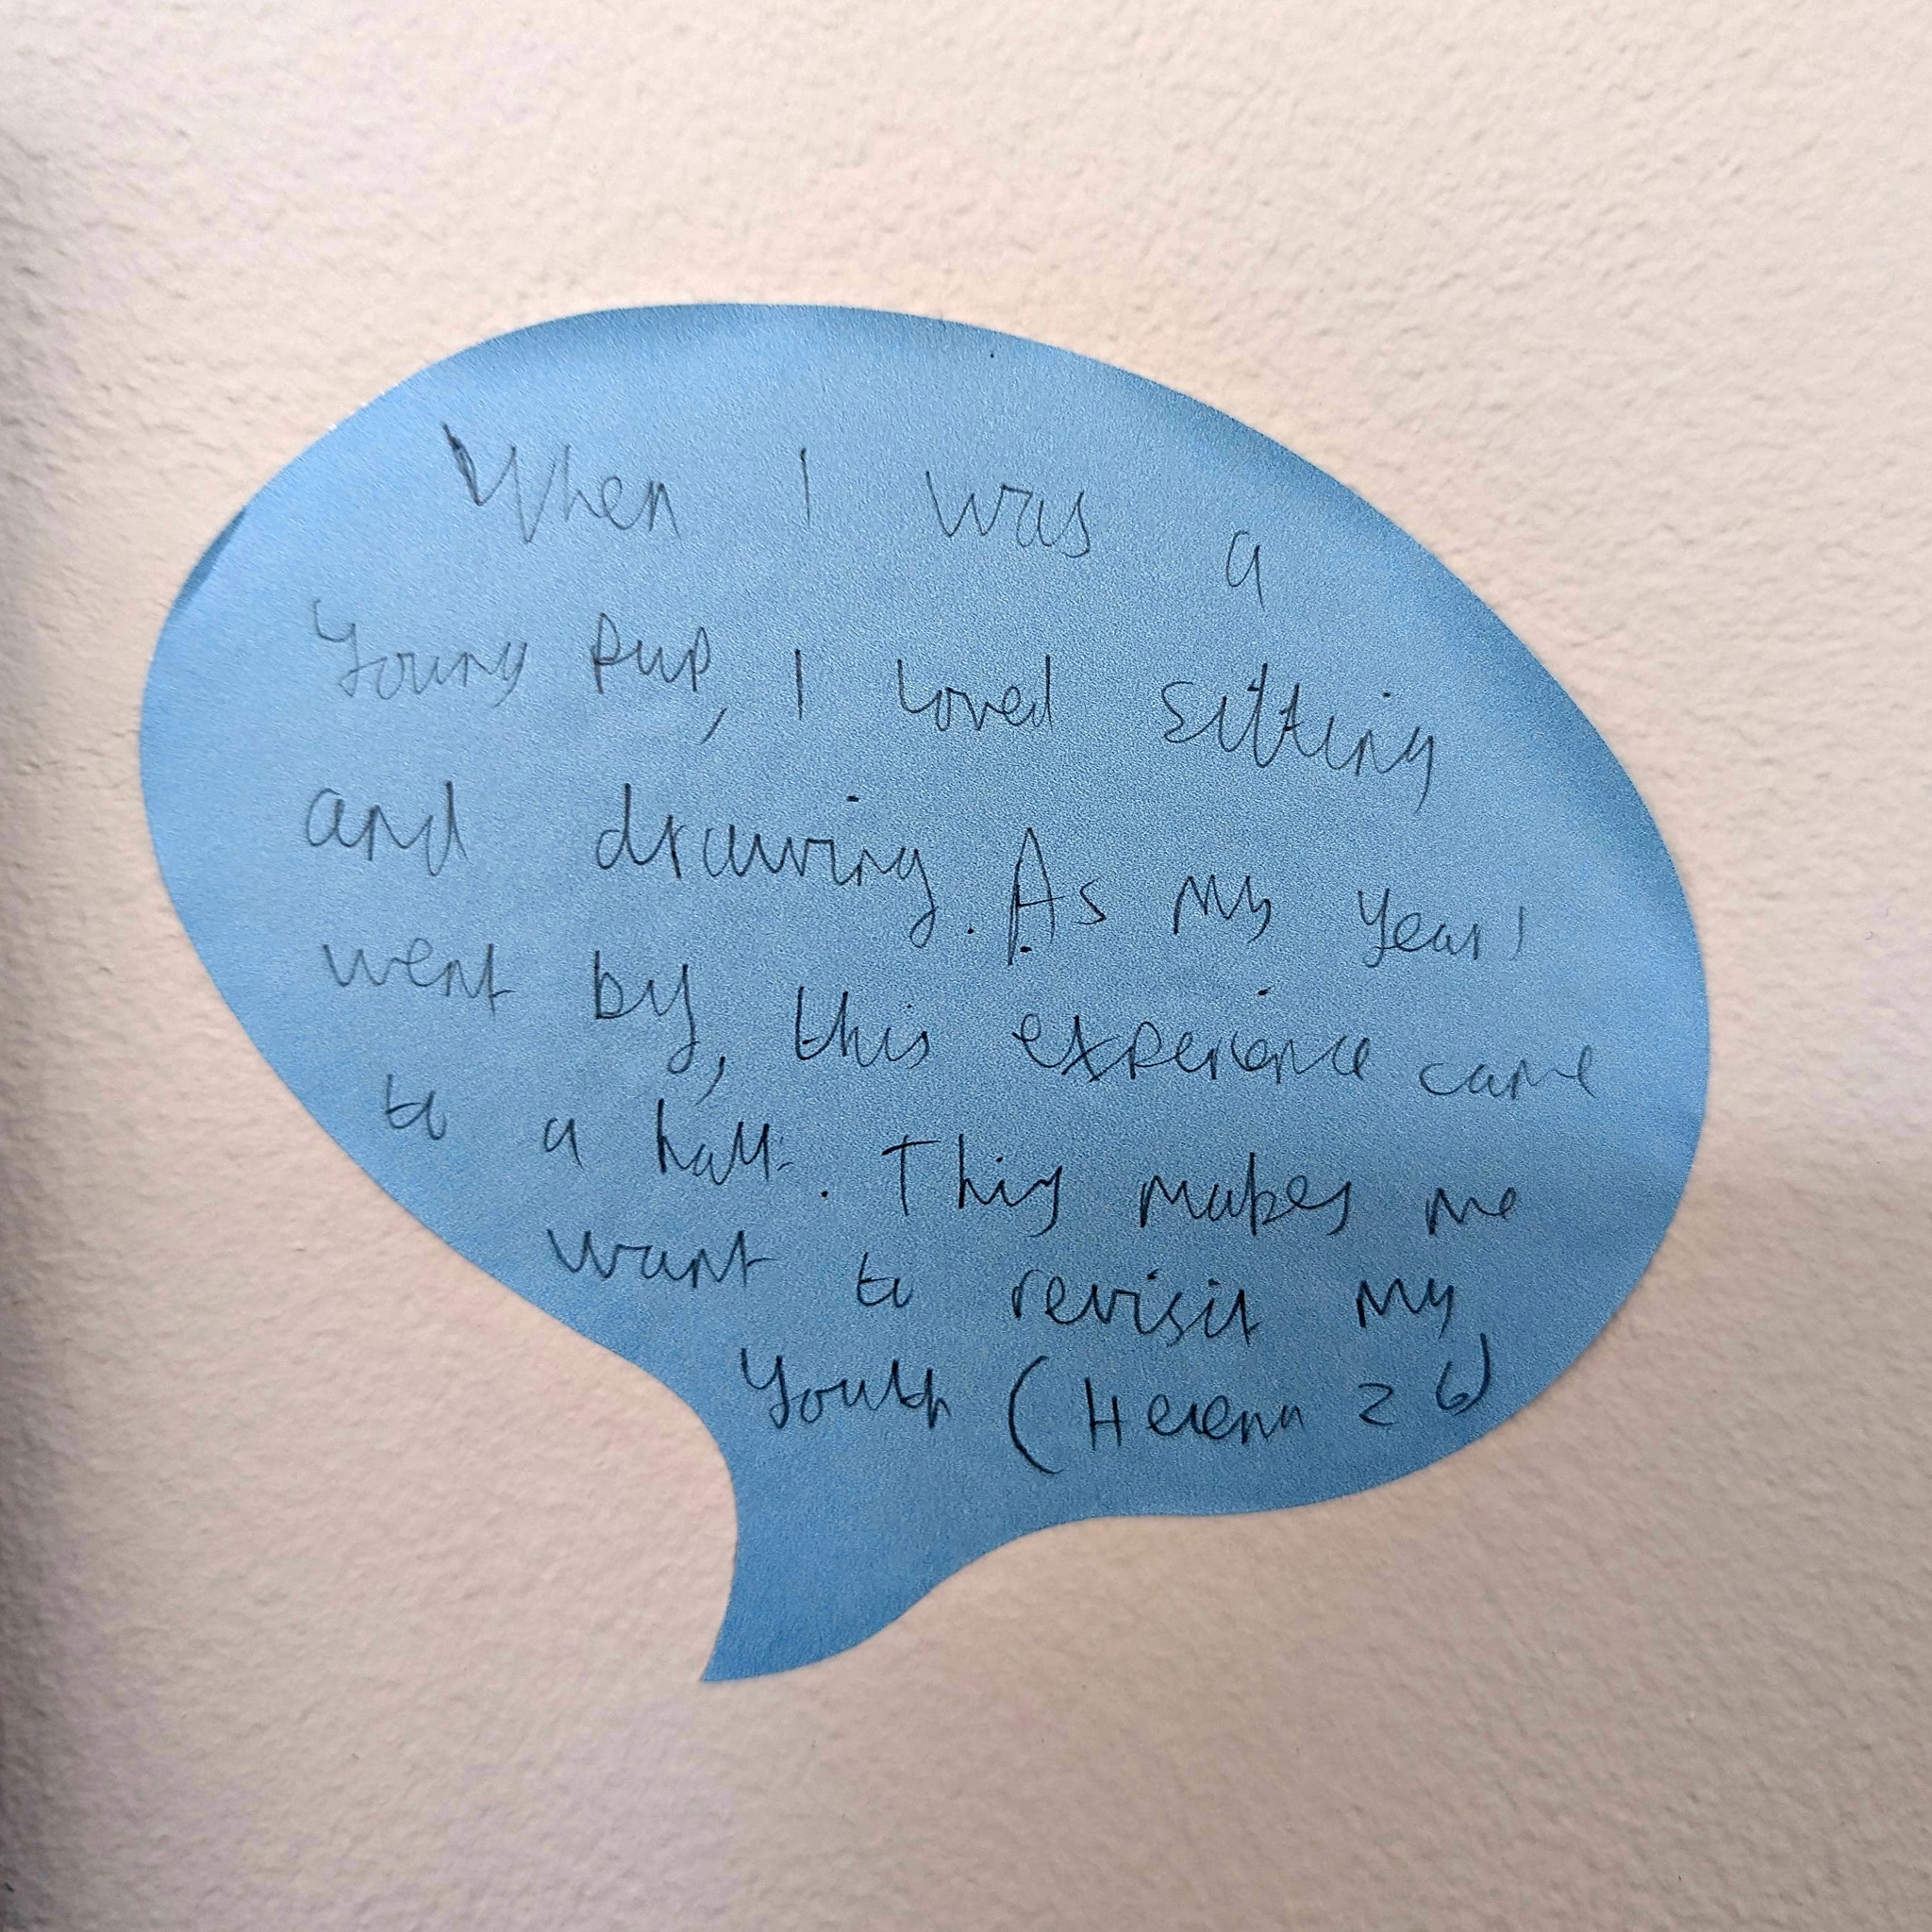 When I was a
Young pup, I loved sitting
and drawing. As my years
went by, this experience came
to a halt. This makes me
want to revisit my
Youth (Helena 26)